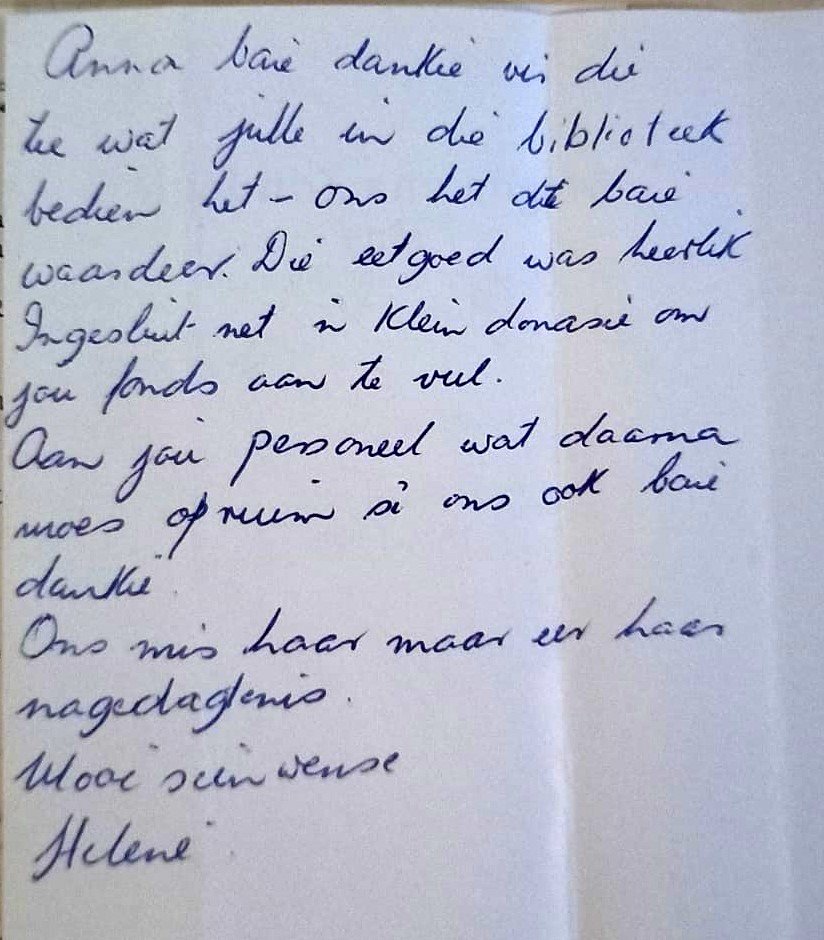 Anna baie dankie vir die
tee wat julle in die biblioteek
bedien het - ons het dit baie
waardeer. Die eetgoed was heerlik
Ingesluit net 'n klein donasie om
jou fonds aan te vul.
Aan jou personeel wat daarna
moes opruim sê ons ook baie
dankie.
Ons mis haar maar eer haar
nagedagtenis.
Mooi seën wense
Helene